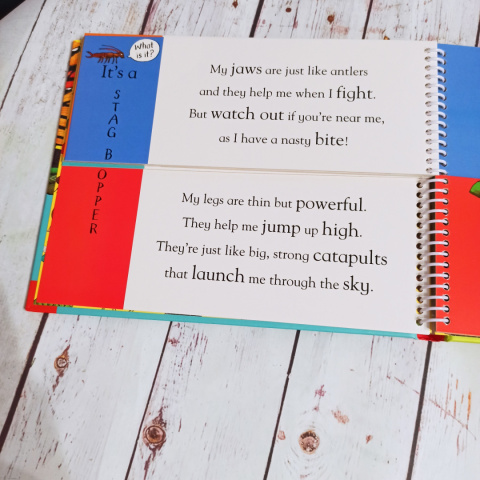 What
is it?
It's a
STAG B
OPPER
My jaws are just like antlers
and they help me when I fight.
But watch out if you're near me,
as I have a nasty bite!
My legs are thin but powerful.
They help me jump up high.
They're just like big, strong catapults
that launch me through the sky.